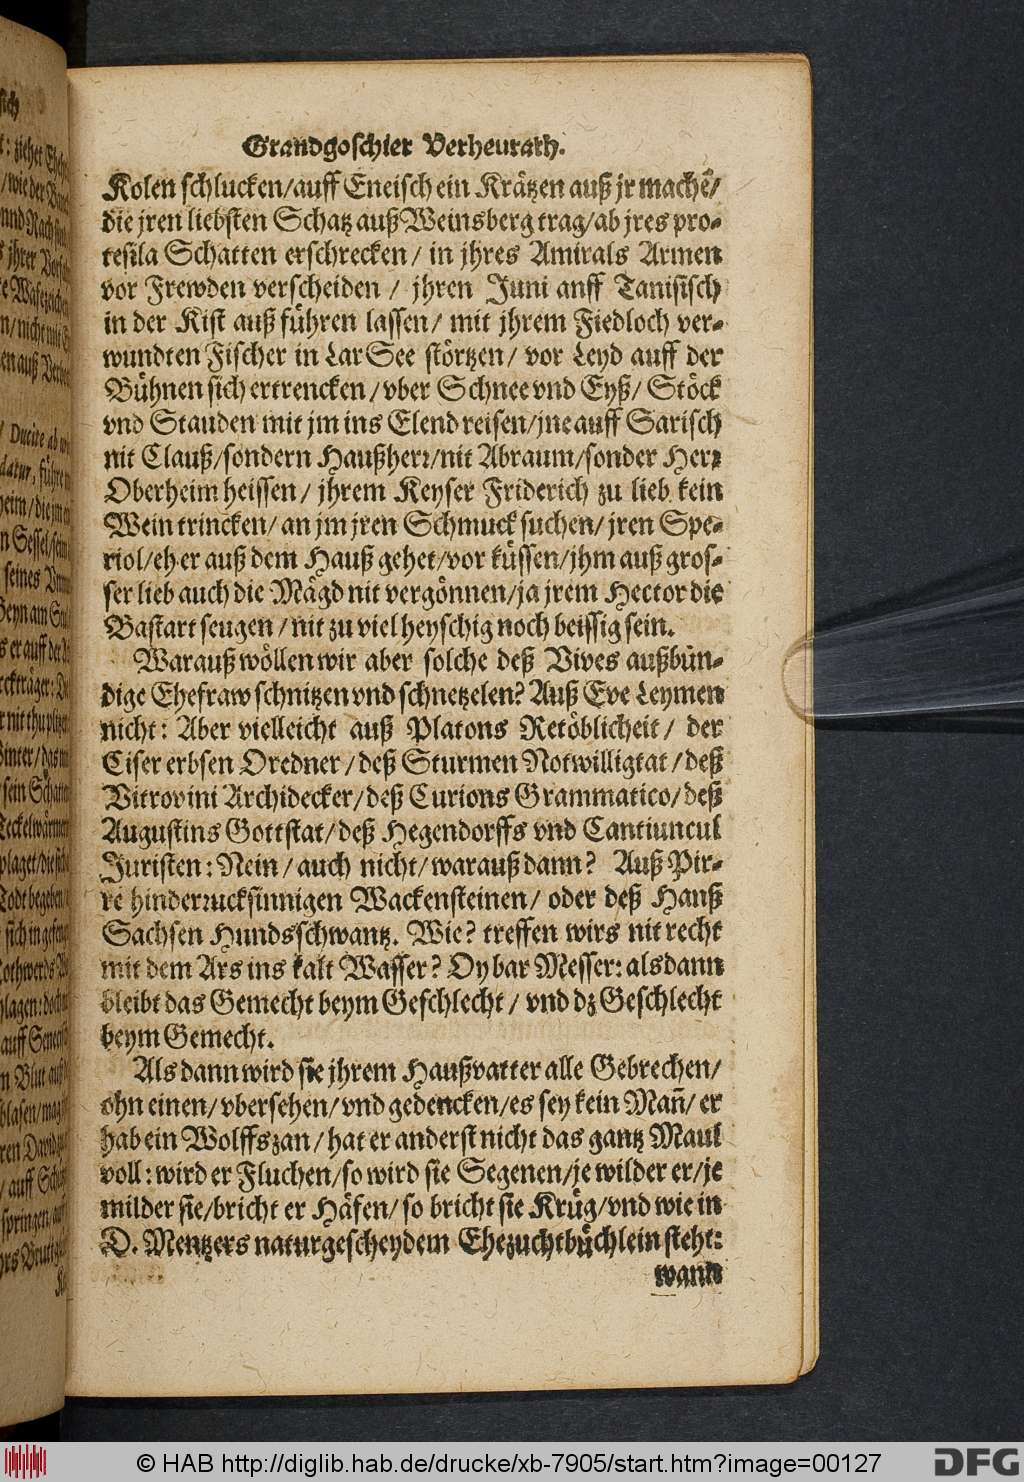 Grandgoschier Verheurath.
Kolen schlucken/auff Eneisch ein Krätzen auß jr machẽ/
die jren liebsten Schatz auß Weinsberg trag/ab jres pro-
tesila Schatten erschrecken/ in jhres Amirals Armen
vor Frewden verscheiden / jhren Juni anff Tanisisch
in der Kist auß führen lassen/ mit jhrem Fiedloch ver-
wundten Fischer in Lar See störtzen/ vor Leyd auff der
Bühnen sich ertrencken/vber Schnee vnd Eyß/ Stöck
vnd Stauden mit jm ins Elend reisen/jne auff Sarisch
nit Clauß/sondern Haußherr/nit Abraum/sonder Herr
Oberheim heissen/ jhrem Keyser Friderich zu lieb kein
Wein trincken/ an jm jren Schmuck suchen/ jren Spe-
riol/eh er auß dem Hauß gehet/vor küssen/jhm auß gros-
ser lieb auch die Mägd nit vergönnen/ja jrem Hector die
Bastart seugen/nit zu viel heyschig noch beissig sein.
Warauß wöllen wir aber solche deß Vives außbün-
dige Ehefraw schnitzen vnd schnetzelen? Auß Eve Leymen
nicht: Aber vielleicht auß Platons Retöblicheit/ der
Ciser erbsen Oredner/deß Sturmen Notwilligtat/deß
Vitrovini Archidecker/deß Curions Grammatico/deß
Augustins Gottstat/deß Hegendorffs vnd Cantiuncul
Juristen: Nein/ auch nicht/warauß dann? Auß Pir-
re hinderrucksinnigen Wackensteinen/ oder deß Hanß
Sachsen Hundsschwantz. Wie? treffen wirs nit recht
mit dem Ars ins kalt Wasser? Oy bar Messer: als dann
bleibt das Gemecht beym Geschlecht/ vnd dz Geschlecht
beym Gemecht.
Als dann wird sie jhrem Haußvatter alle Gebrechen/
ohn einen/vbersehen/vnd gedencken/es sey kein Mañ/ er
hab ein Wolffszan/hat er anderst nicht das gantz Maul
voll: wird er Fluchen/so wird sie Segenen/je wilder er/je
milder sie/bricht er Häfen/ so bricht sie Krüg/vnd wie in
D. Mentzers naturgescheydem Ehezuchtbüchlein steht:
wann
© HAB http://diglib.hab.de/drucke/xb-7905/start.htm?image=00127
DFG